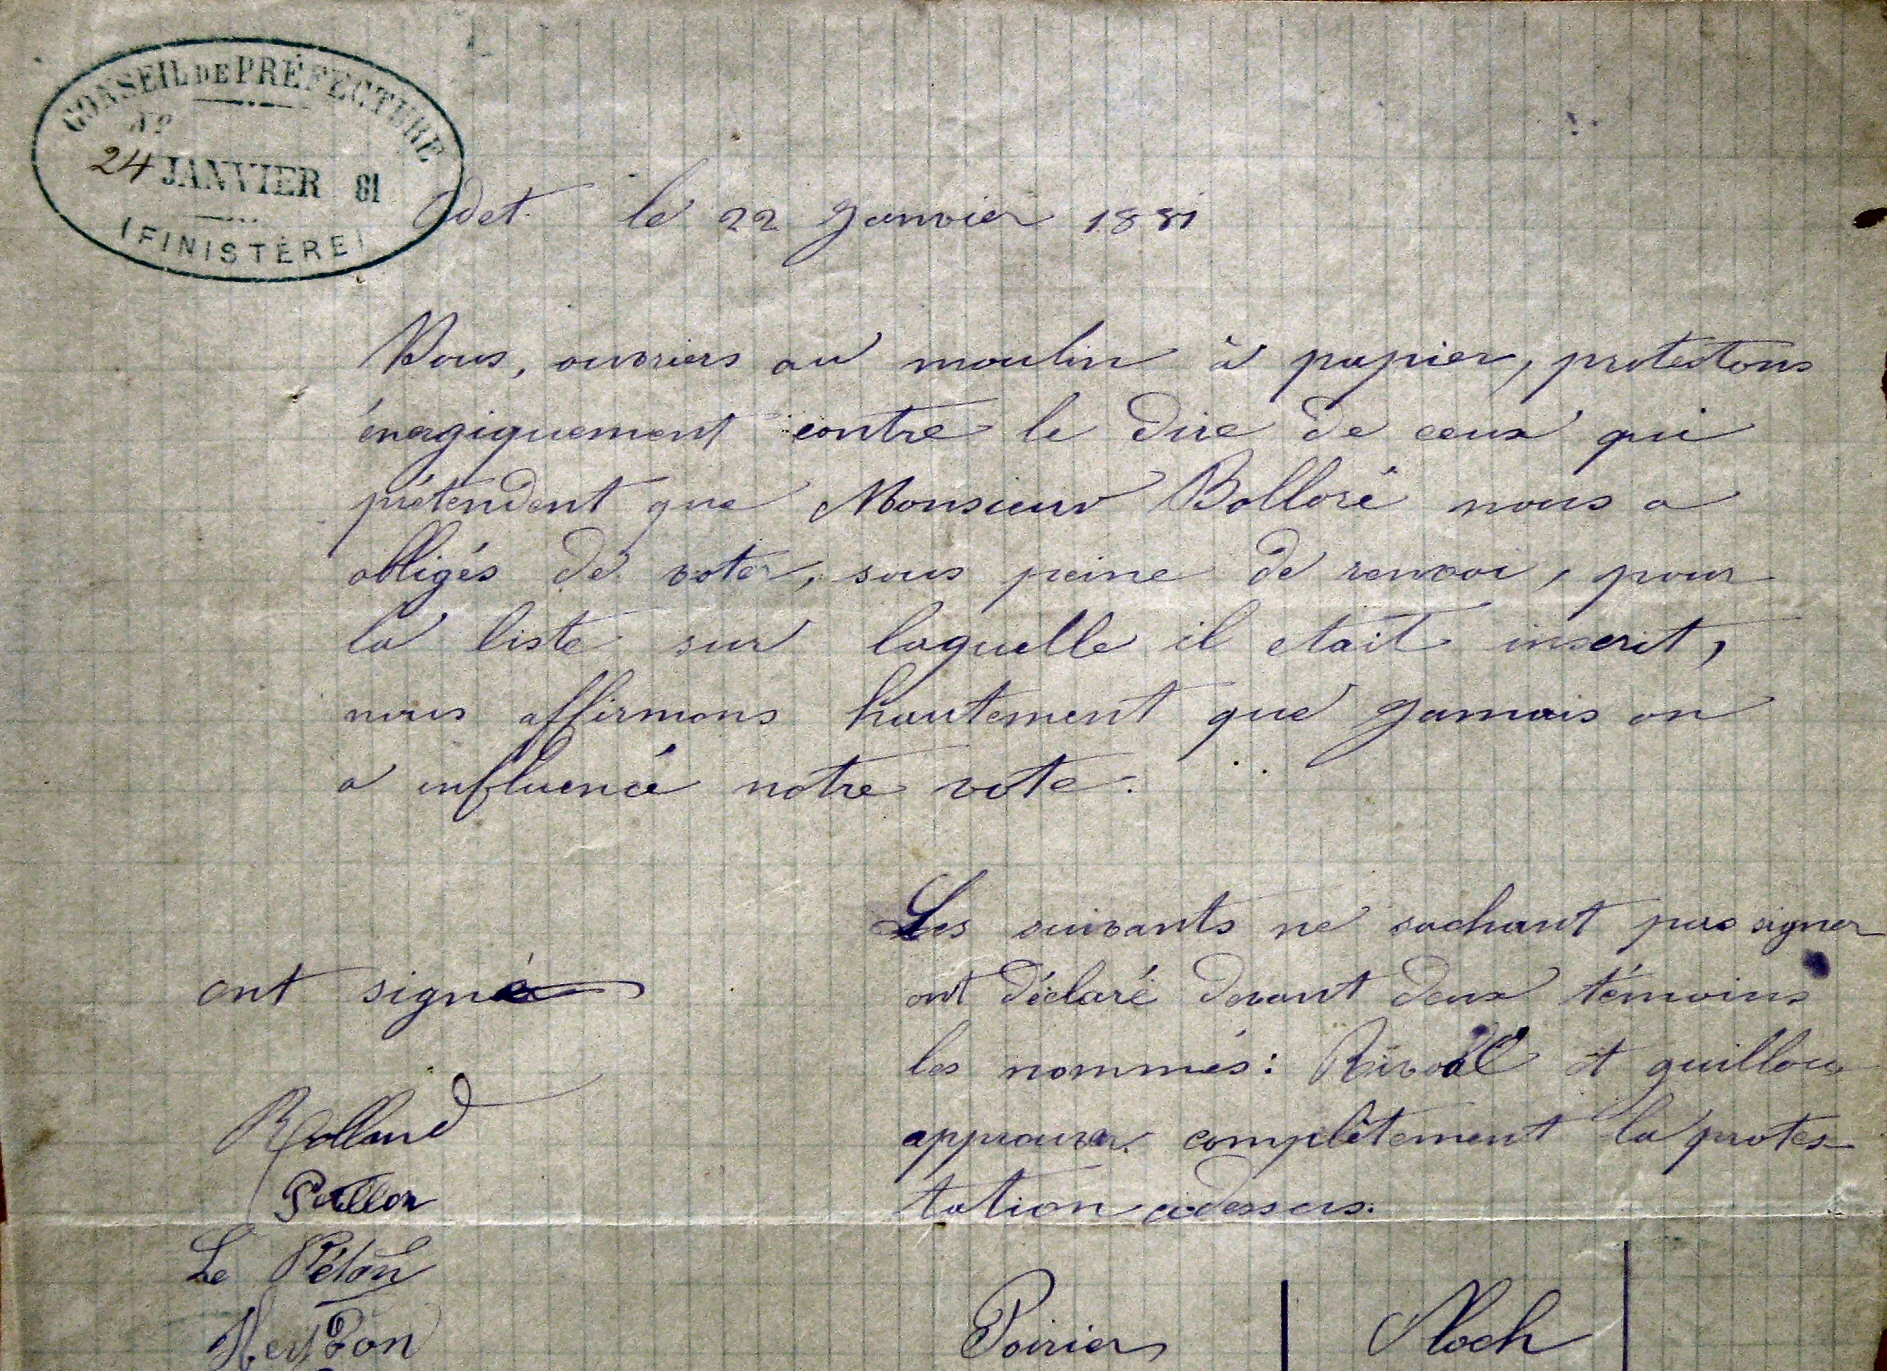 CONSEIL DE PRÉFECTURE
No
24 JANVIER 81
(FINISTÈRE)
Odet le 22 Janvier 1881
Nous, ouvriers au moulin à papier, protestons
énergiquement contre le dire de ceux qui
prétendent que Monsieur Bolloré nous a
obligés de voter, sous peine de renvoi, pour
la liste sur laquelle il etait inscrit,
nous affirmons hautement que jamais on
a influencé notre vote.
ont signé
Rolland
Le Péton
Les suivants ne sachant pas signer
ont déclaré devant deux témoins
les nommés: Rivoal et guillou
approuver complêtement la protes-
tation cidessus.
Poirier